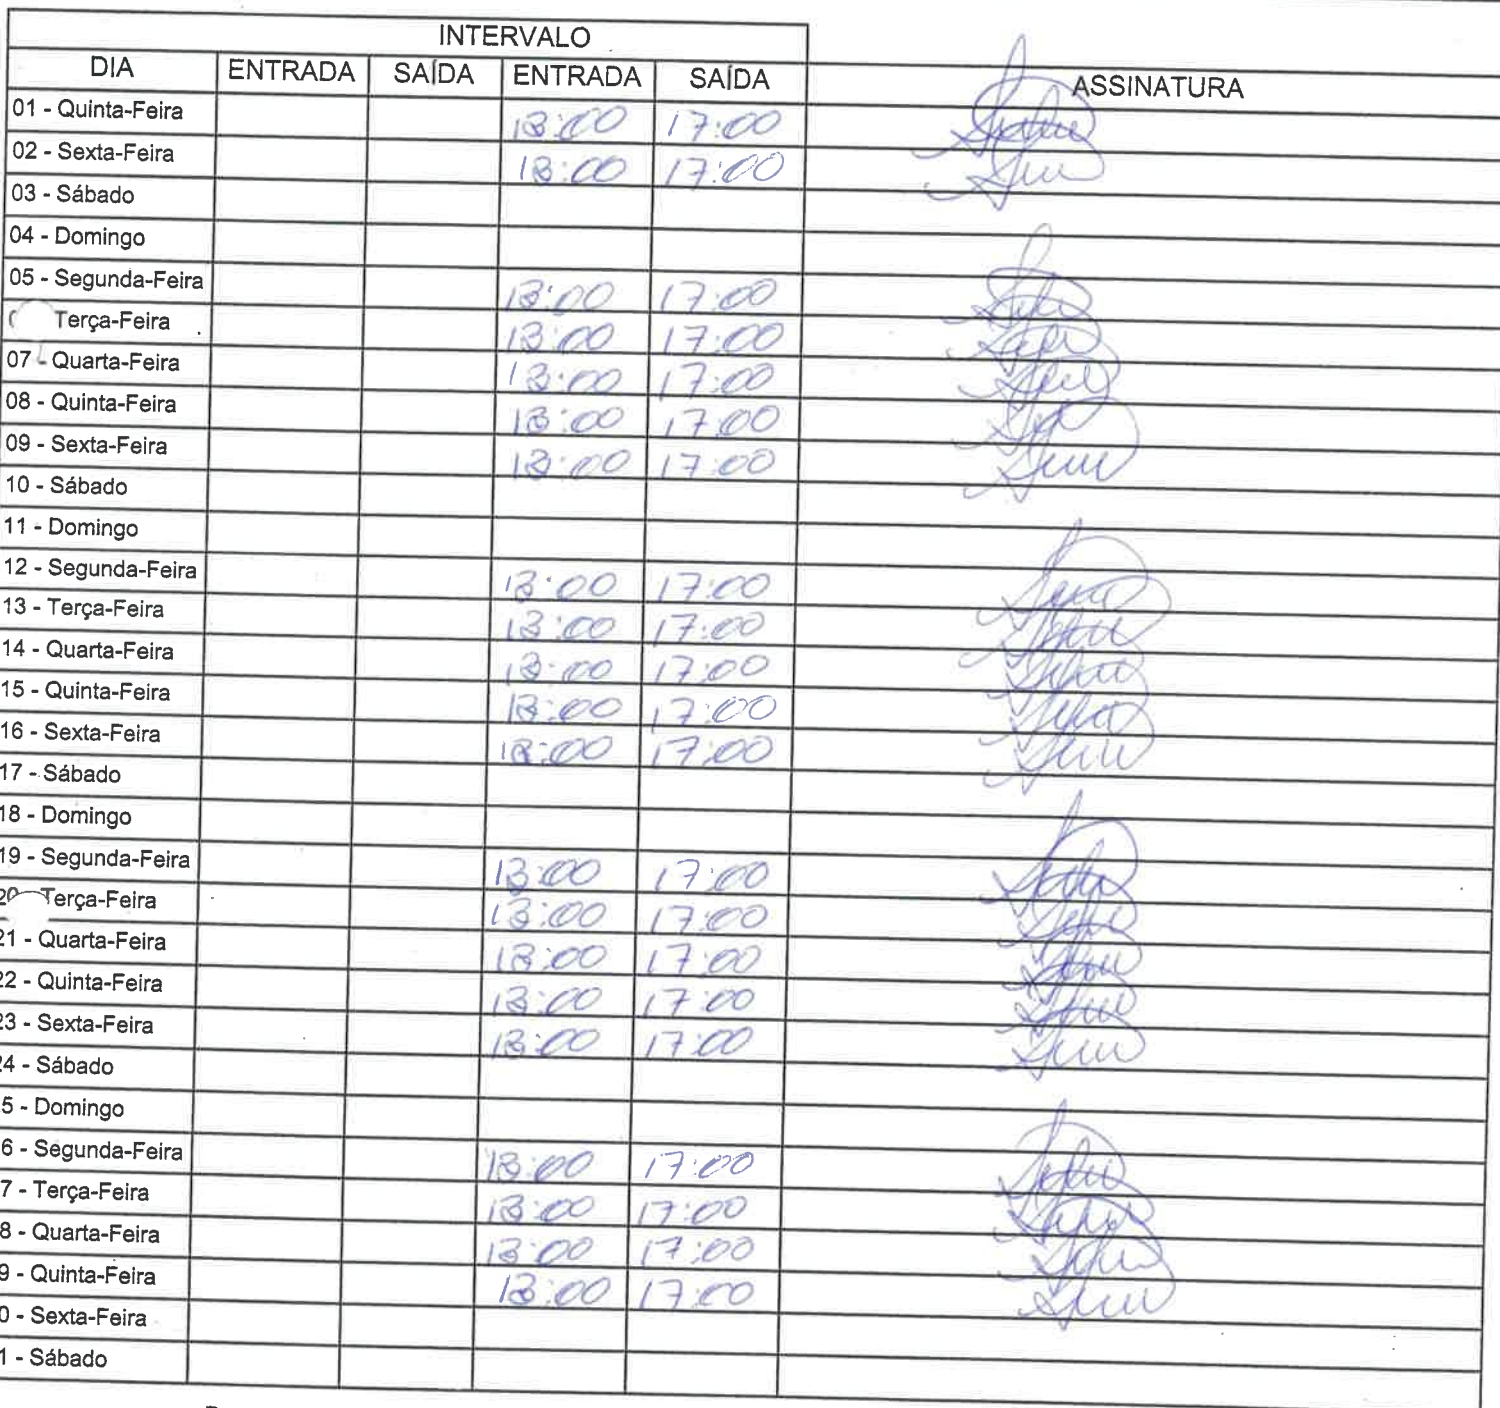 INTERVALO
DIA ENTRADA SAÍDA ENTRADA SAÍDA ASSINATURA
01 - Quinta-Feira 13:00 17:00
02 - Sexta-Feira 13:00 17:00
03 - Sábado
04 - Domingo
05 - Segunda-Feira 13:00 17:00
Terça-Feira 13:00 17:00
07 - Quarta-Feira 13:00 17:00
08 - Quinta-Feira 13:00 17:00
09 - Sexta-Feira 13:00 17:00
10 - Sábado
11 - Domingo
12 - Segunda-Feira 13:00 17:00
13 - Terça-Feira 13:00 17:00
14 - Quarta-Feira 13:00 17:00
15 - Quinta-Feira 13:00 17:00
16 - Sexta-Feira 13:00 17:00
17 - Sábado
18 - Domingo
19 - Segunda-Feira 13:00 17:00
20 Terça-Feira 13:00 17:00
21 - Quarta-Feira 13:00 17:00
22 - Quinta-Feira 13:00 17:00
23 - Sexta-Feira 13:00 17:00
24 - Sábado
5 - Domingo
6 - Segunda-Feira 13:00 17:00
7 - Terça-Feira 13:00 17:00
8 - Quarta-Feira 13:00 17:00
9 - Quinta-Feira 13:00 17:00
0 - Sexta-Feira
1 - Sábado